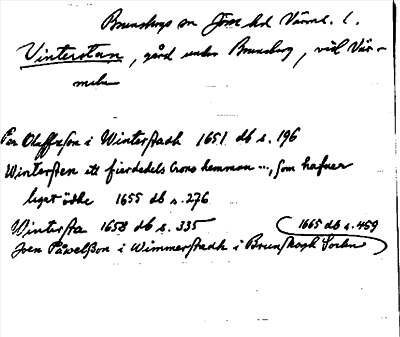 Brunskogs sn Jösse hd Värml. l.
Vinterstan, gård under Brunsberg, vid Vär-
meln
Per Olaffzson i Winterstadh 1651 db s. 196
Wintersten ett fierdedels Crono hemman ..., som hafuer
liget ödhe 1655 db s. 276
Wintersta 1658 db s. 335
1665 db s. 459
Joen Påwelßon i Wimmerstadh i Brunskogh Sochn